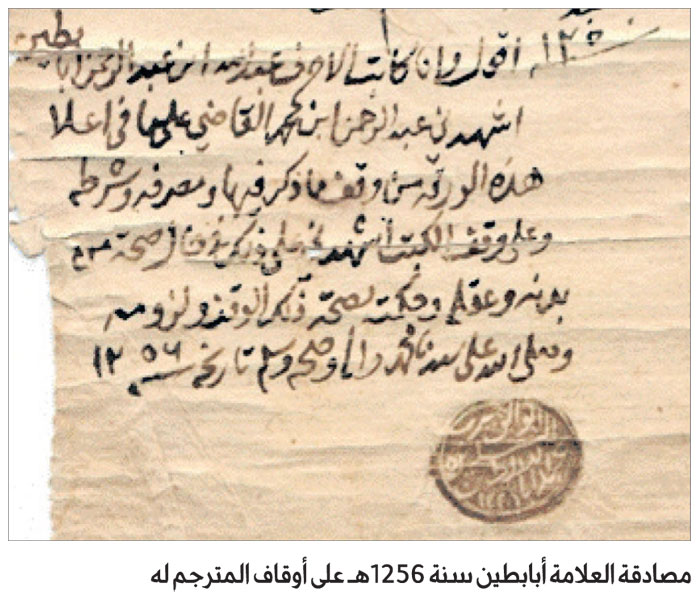 أقول وانا كاتب الاحرف عبدالله ابن عبدالرحمن أبا بطين
اشهدني عبدالرحمن ابن محمد القاضي على ما في اعلا
هذه الورقة من وقف ما ذكر فيها ومصرفه وشرطه
وعلى وقف الكتب أشهدني على ذلك في حال صحة
بدنه وعقله وحكمت بصحة ذلك الوقف ولزومه
وصلى الله على سيدنا محمد واله وصحبه وسلم تاريخه سنة ١٢٥٦
مصادقة العلامة أبابطين سنة 1256هـ على أوقاف المترجم له